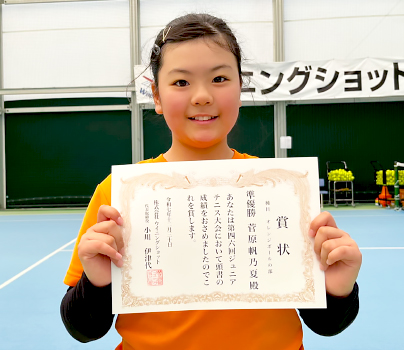 ニングショット
賞状
準優勝 菅原帆乃夏殿
あなたは第四六回ジュニア
テニス大会において頭書の
成績をおさめましたのでこ
れを賞します
株式会社ウイニングショット
小川 伊津代